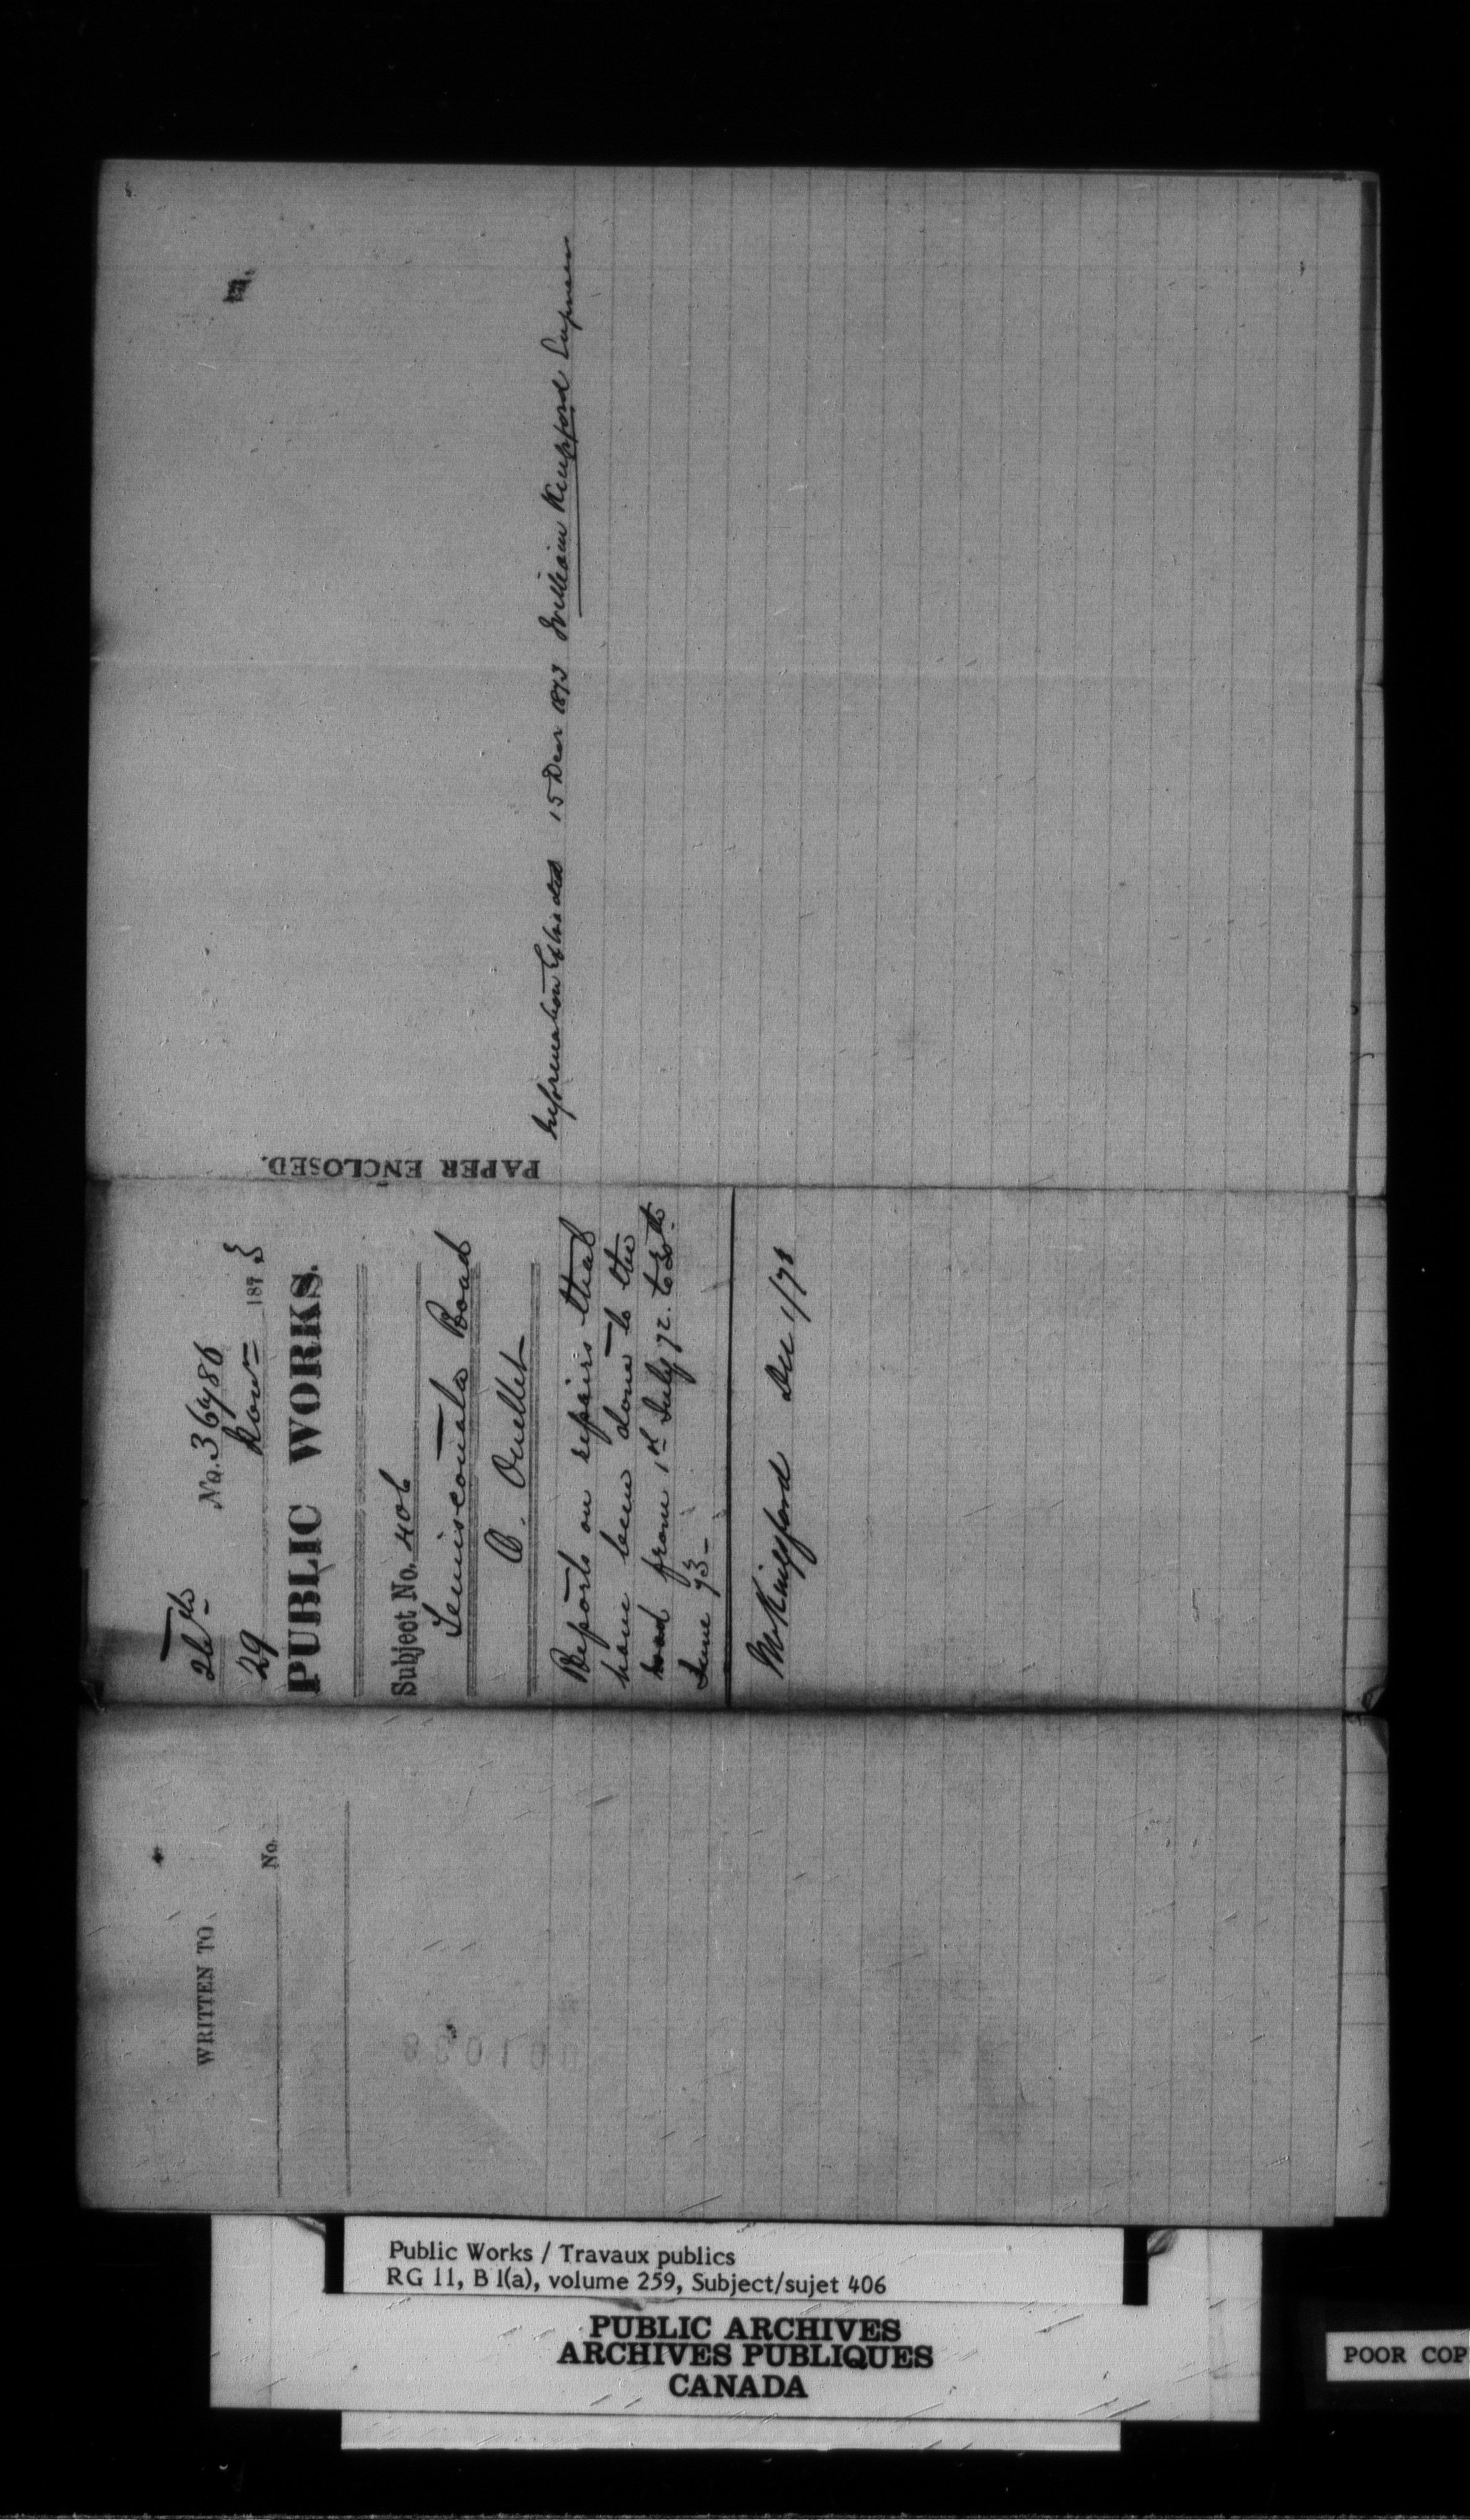 WRITTEN TO
No.
26
No. 36786
29 Nov 1873
PUBLIC WORKS.
Subject No. 406
Temiscouata Road
B. Ouellet
Reports on repairs that
have been done to the
road from 1st July 72. to 30th
June 73 -
Wm Kingsford Dec 1/73
PAPER ENCLOSED.
Information 15 Decr 1873 William Kingsford
Public Works / Travaux publics
RG 11, B 1(a), volume 259, Subject/sujet 406
PUBLIC ARCHIVES
ARCHIVES PUBLIQUES
CANADA
POOR COP